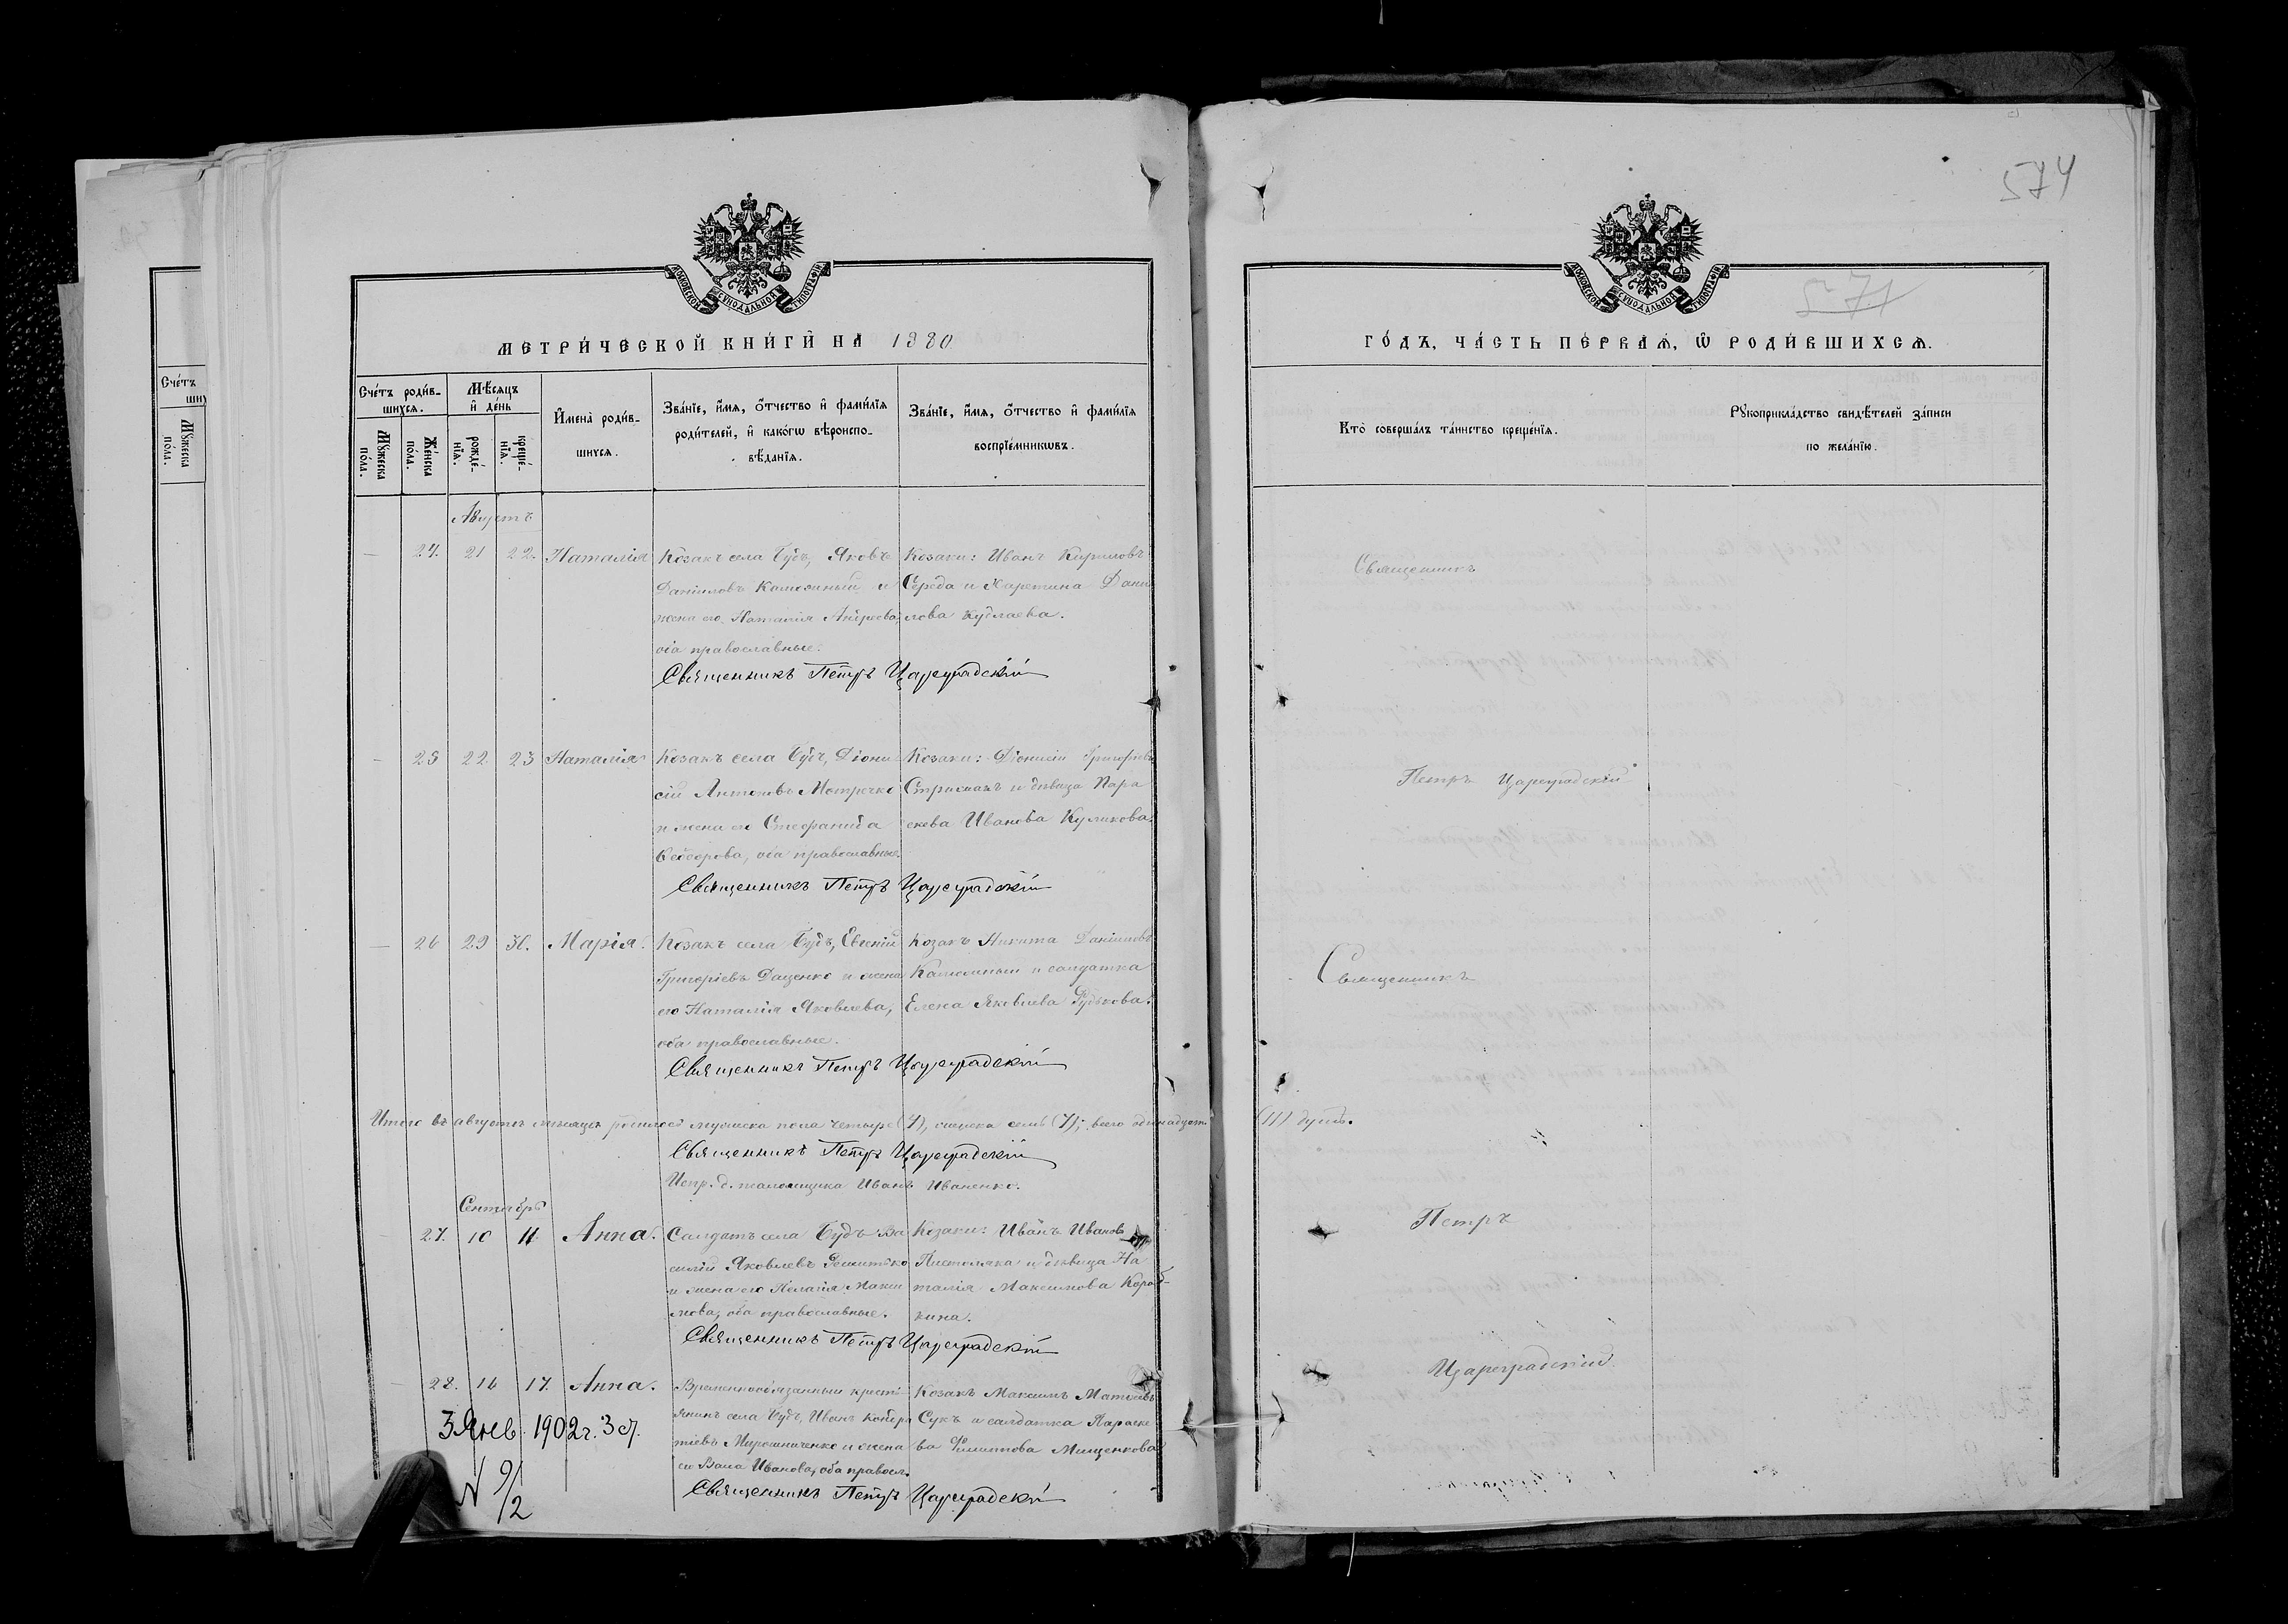 574
571
МЕТРИ́ЧЕСКОЙ КНИ́ГИ НА 1880
ГО́ДЪ, ЧА́СТЬ ПЕ́РВАЯ, Ѡ РОДИ́ВШИХСЯ.
Сче́тъ роди́в-
шихся.
Мꙋжеска по́ла.
Же́нска по́ла.
Мѣ́сяцъ и де́нь
рожде́-
нїя.
креще́-
нїя.
И҆мена̀ роди́в-
шихся.
Зва́нїе, и҆́мя, ѻ҆́тчество и҆ фами́лїя
роди́телей, и҆ како́гѡ вѣроиспо-
вѣ́данїя.
Зва́нїе, и҆́мя, ѻ҆́тчество и҆ фами́лїя
воспрїе́мникѡвъ.
Кто̀ соверша́лъ та́инство креще́нїя.
Рꙋкоприкла́дство свидѣ́телей за́писи
по жела́нїю.
Августъ
24. 21 22. Наталія
Козакъ села Будъ, Яковъ
Даніиловъ и
жена его Наталія Андреева,
оба православные.
Козаки: Иванъ Кириловъ
Середа и Харитина Дани
лова Кудлаева.
Священникъ Петръ Цареградскій
25 22 23 Наталія
Козакъ села Будъ, Діони
сій Антоновъ
и жена его Стефанида
Феодорова, оба православные.
Козаки: Діонисій Григорьевъ
и дѣвица Пара
скева Иванова Куликова.
Священникъ Петръ Цареградскій
26 29 30. Марія.
Козакъ села Будъ, Евгеній
Григоріевъ Даценко и жена
его Наталія Яковлева,
оба православные.
Козакъ Никита Даніиловъ
и солдатка
Елена Яковлева
Священникъ Петръ Цареградскій
Итого въ августѣ мѣсяцѣ родилось мужеска пола четыре (4), женска семь (7); всего одинадцать (11) душъ.
Священникъ Петръ Цареградскій
Испр. д. псаломщика Иванъ Иваненко.
Сентябрь
27. 10 11 Анна.
Солдатъ села Будъ Ва
силій Яковлевъ
и жена его Пелагія Макси
мова, оба православные.
Козаки: Иванъ Ивановъ
и дѣвица На
талія Максимова
Священникъ Петръ Цареградскій
28. 16 17. Анна.
Временнообязанный крестьянинъ села Будъ, Иванъ
Мирошниченко и жена
его Иванова, оба правосл.
Козакъ Максимъ
Сукъ и солдатка Параске
ва Филиппова Мищенкова
Священникъ Петръ Цареградскій
3 Янв. 1902 г.
№ 9/2
Священникъ
Петръ Цареградскій
Священникъ
Петръ
Цареградскій.